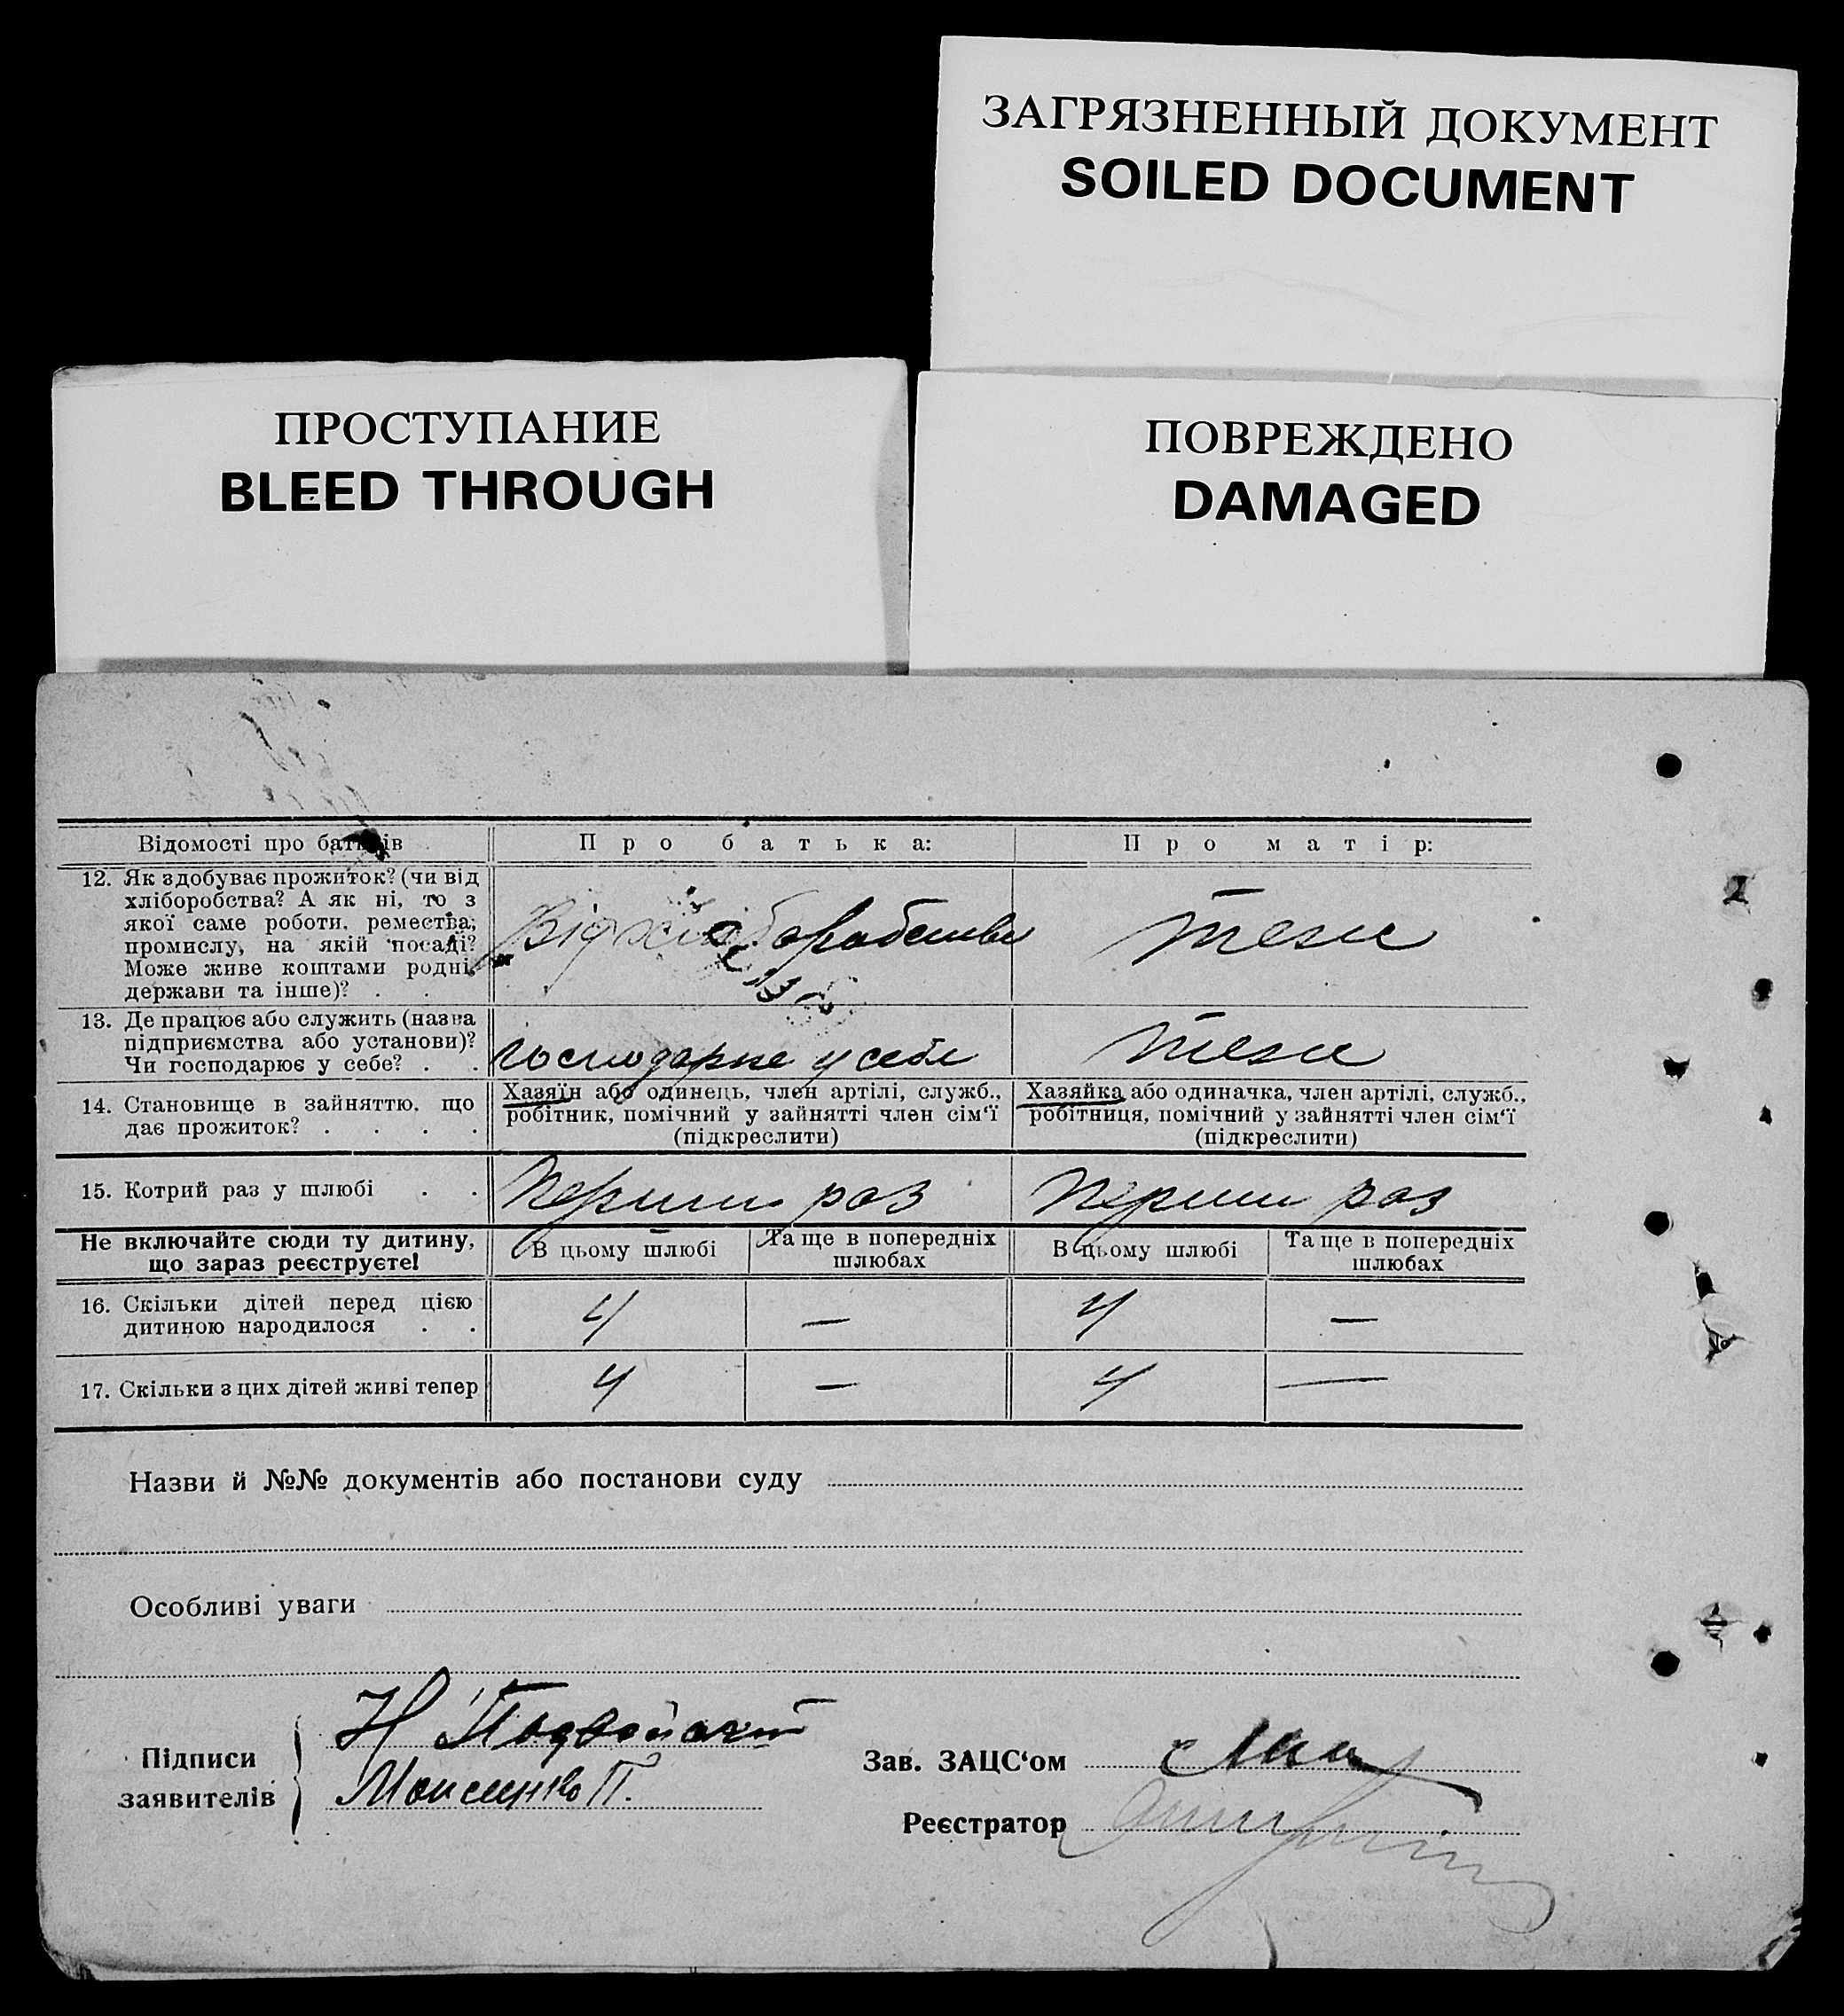 ЗАГРЯЗНЕННЫЙ ДОКУМЕНТ
SOILED DOCUMENT
ПРОСТУПАНИЕ
BLEED THROUGH
ПОВРЕЖДЕНО
DAMAGED
Відомості про батьків
Про батька:
Про матір:
12. Як здобуває прожиток? (чи від
хліборобства? А як ні, то з
якої саме роботи, ремества,
промислу, на якій посаді?
Може живе коштами родні,
держави та інше)? . .
Від хліборобства
теж
13. Де працює або служить (назва
підприємства або установи)?
Чи господарює у себе? . .
господарює у себе
теж
14. Становище в зайняттю, що
дає прожиток? . . . .
Хазяїн або одинець, член артілі, служб.,
робітник, помічний у зайнятті член сім'ї
(підкреслити)
Хазяйка або одиначка, член артілі, служб.,
робітниця, помічний у зайнятті член сім'ї
(підкреслити)
15. Котрий раз у шлюбі . .
перший раз
перший раз
Не включайте сюди ту дитину,
що зараз реєструєте!
В цьому шлюбі
Та ще в попередніх
шлюбах
В цьому шлюбі
Та ще в попередніх
шлюбах
16. Скільки дітей перед цією
дитиною народилося . .
4 — 4 —
17. Скільки з цих дітей живі тепер
4 — 4 —
Назви й №№ документів або постанови суду
Особливі уваги
Підписи
заявителів
Н Подвойский
Моисенко П.
Зав. ЗАЦС'ом
Реєстратор